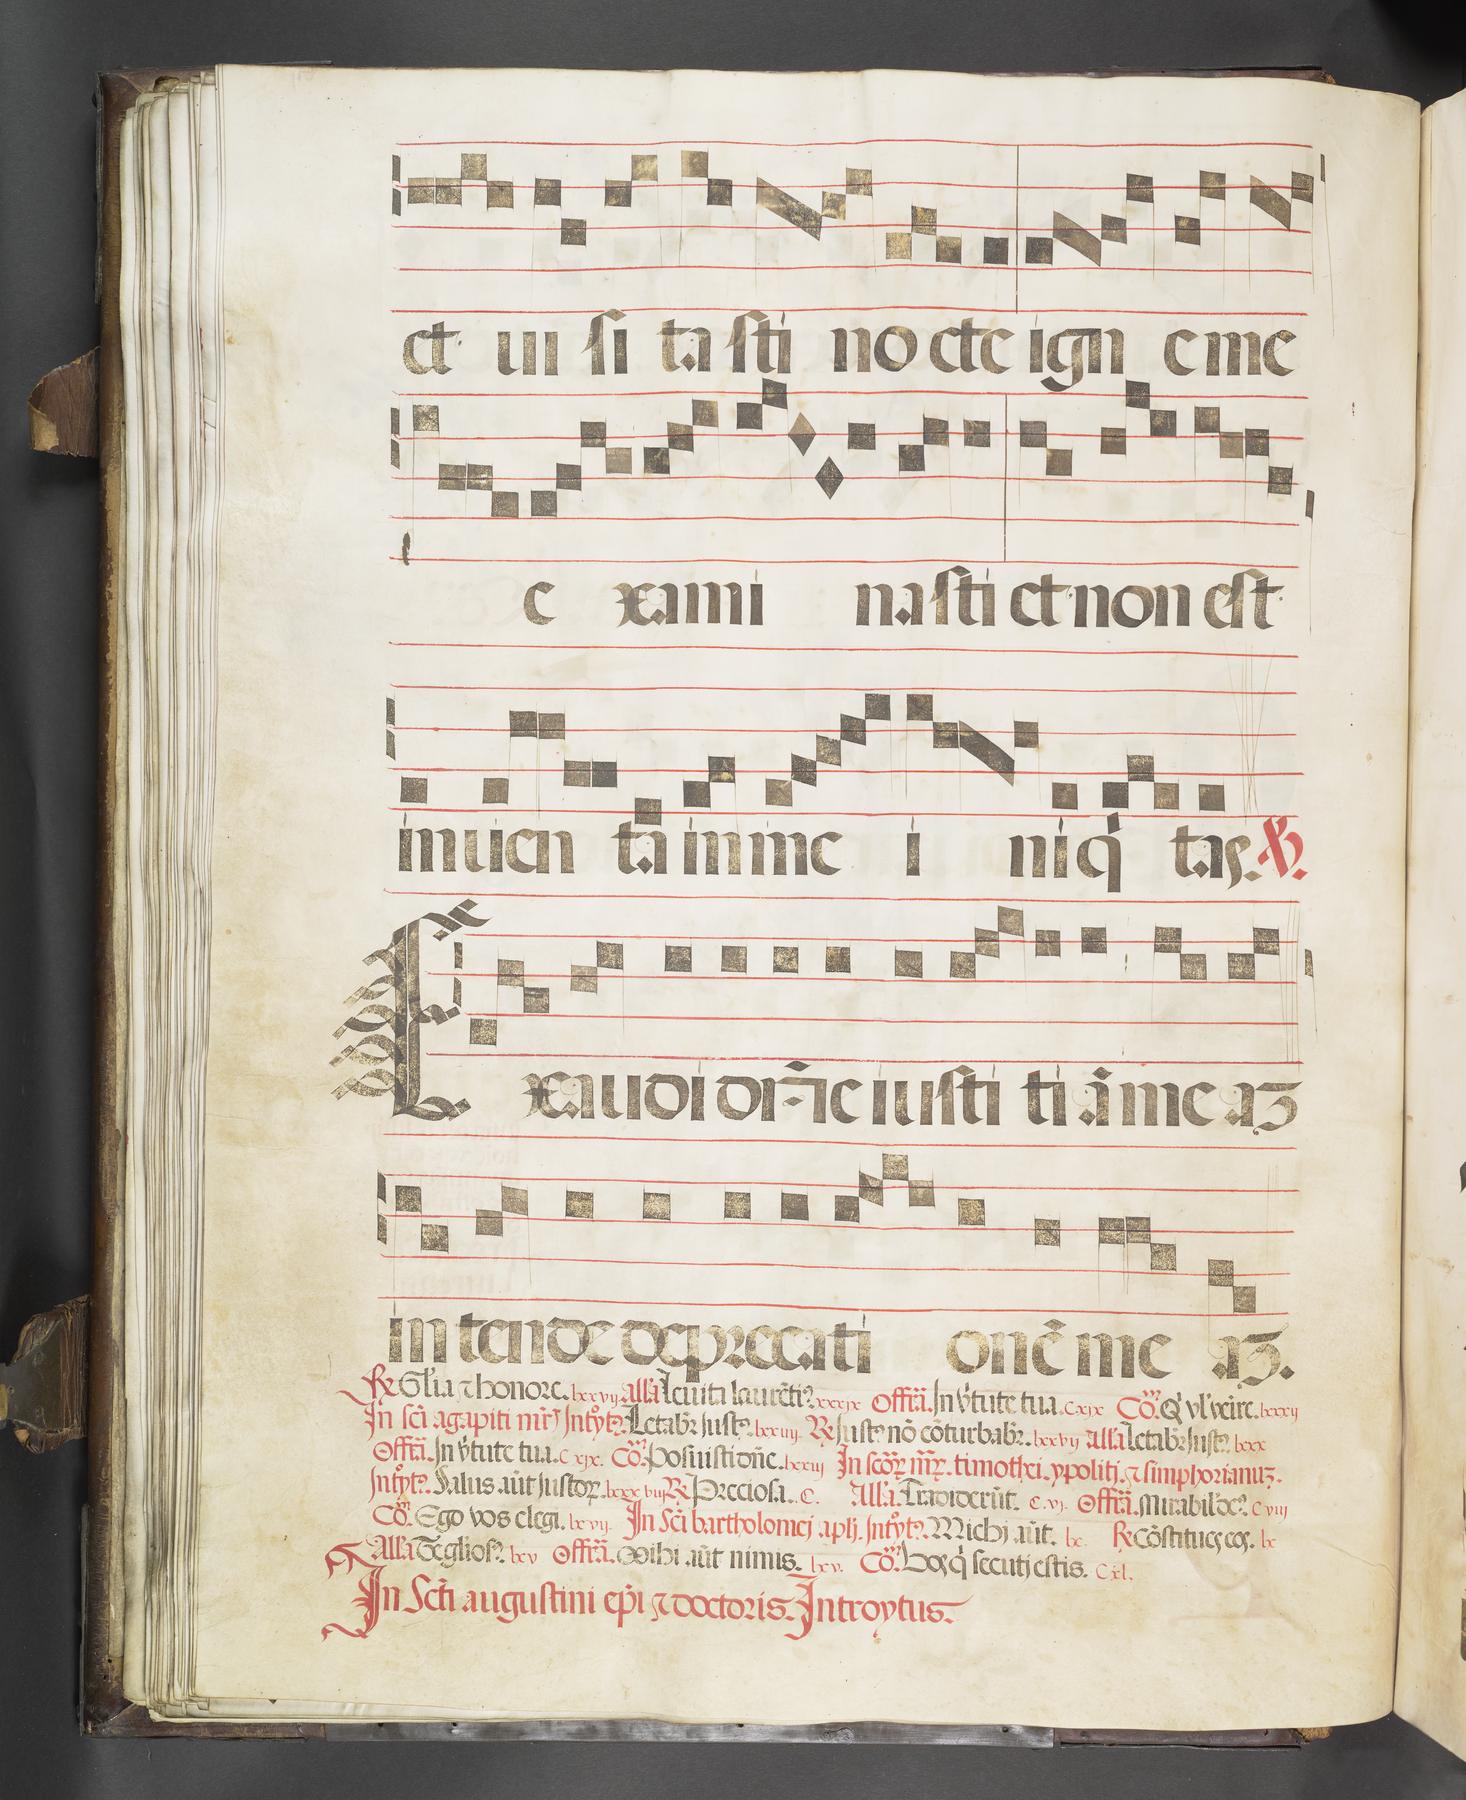 et ui si ta sti no cte ign e me
e xami na sti et non est
inuen ta in me i niq̇ tas. ℣.
Exaudi dn̄e iusti ti ā me aʒ
in tende deprecati onē me aʒ.
℞ Gl̄ia ⁊ honore. lxxvij Alla Leuita laurēti⁹. xxxix Offr̄a. In v̄tute tua. Cxix Cō. Q' vl' veire. lxxxij
In sc̄i agapiti mr̄ꝭ Intoyt⁹. Letabr̄ Just⁹. lxxiiij. ℞ Just⁹ nō cōturbabr̄. lxxvij Alla Letabr̄ Just⁹. lxxx
Offr̄a. In v̄tute tua. Cxix. Cō. Posuisti dn̄e. lxxiij In scōꝝ mr̄ꝝ. timothei. ypolitj. ⁊ simphorianuʒ.
Intoyt⁹. Salus aūt Justoꝝ. lxxxviij ℞ Preciosa. C. Alla. Tradiderūt. C.vj. Offr̄a. Mirabil' de⁹. C viij
Cō. Ego vos elegi. lxvij. In Sc̄i bartholomej aplj. Intoyt⁹. Michj aūt. lx. ℞ Cōstitues eos. lx
Alla Te glios⁹. lxv Offr̄a. Mihi aūt nimis. lxv. Cō. Vos q̇ secutj estis. Cxl.
In Sc̄ti augustini ep̄i ⁊ doctoris. Introytus.